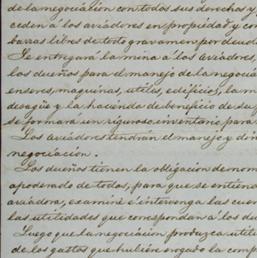 de la negociación con todos sus derechos y
ceden á los aviadores en propiedad y con
barras libres de todo gravamen por deuda
Se entregará la mina á los aviadores,
los dueños para el manejo de la negocia
enseres, maquinas, utiles, edificio, la m
desagüe y la hacienda de beneficio de su
se formará un riguroso inventario para
Los aviadores tendrán el manejo y di
negociación.
Los dueños tienen la obligación de nom
apoderado de todos, para que se entien
aviadora, examine é intervenga las cuen
las utilidades que correspondan á los du
Luego que la negociación produzca utili
de los gastos que hubiere erogado la comp